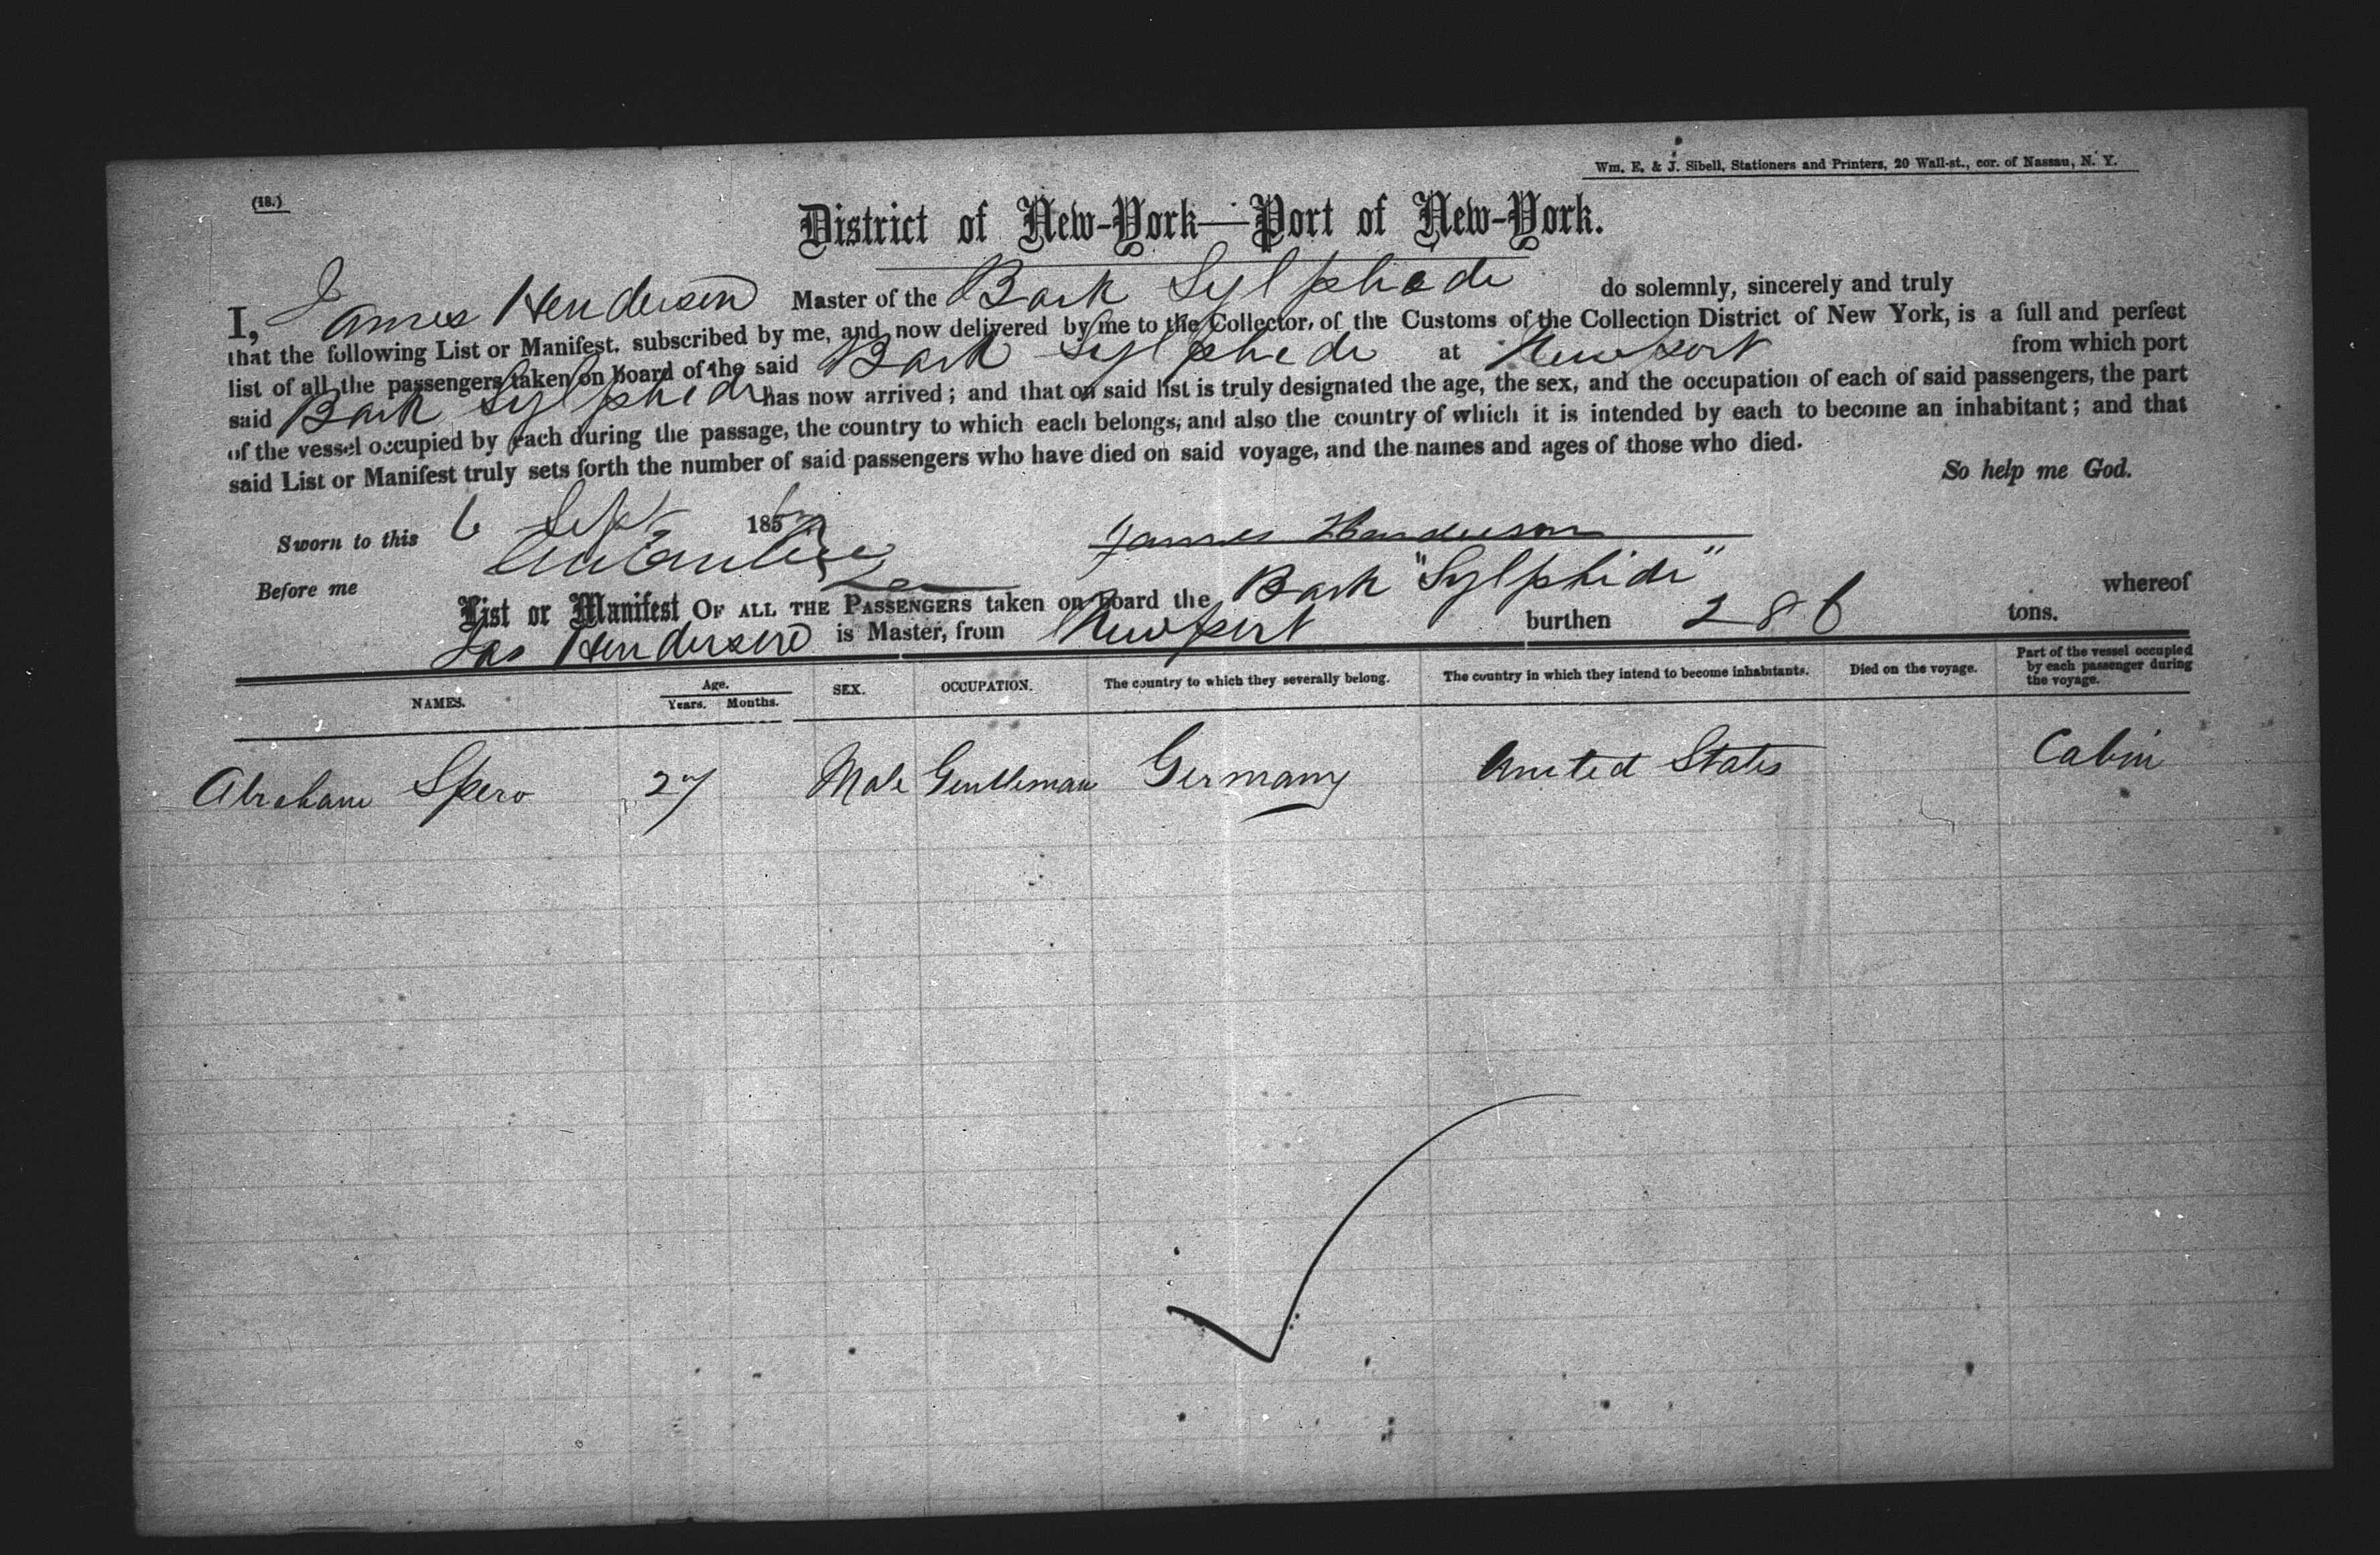 Wm. E. & J. Sibell, Stationers and Printers, 20 Wall-st., cor. of Nassau, N. Y.
(18.)
District of New-York—Port of New-York.
I, James Henderson Master of the Bark Sylphide do solemnly, sincerely and truly
that the following List or Manifest, subscribed by me, and now delivered by me to the Collector, of the Customs of the Collection District of New York, is a full and perfect
list of all the passengers taken on board of the said Bark Sylphide at Newport from which port
said Bark Sylphide has now arrived; and that on said list is truly designated the age, the sex, and the occupation of each of said passengers, the part
of the vessel occupied by each during the passage, the country to which each belongs, and also the country of which it is intended by each to become an inhabitant; and that
said List or Manifest truly sets forth the number of said passengers who have died on said voyage, and the names and ages of those who died.
So help me God.
Sworn to this 6 Sept 185
James Henderson
Before me
List or Manifest OF ALL THE PASSENGERS taken on board the Bark "Sylphide" whereof
Jas Henderson is Master, from Newport burthen 286 tons.
NAMES. Age. Years. Months. SEX. OCCUPATION. The country to which they severally belong. The country in which they intend to become inhabitants. Died on the voyage. Part of the vessel occupied by each passenger during the voyage.
Abraham Spero 27 Male Gentleman Germany United States Cabin